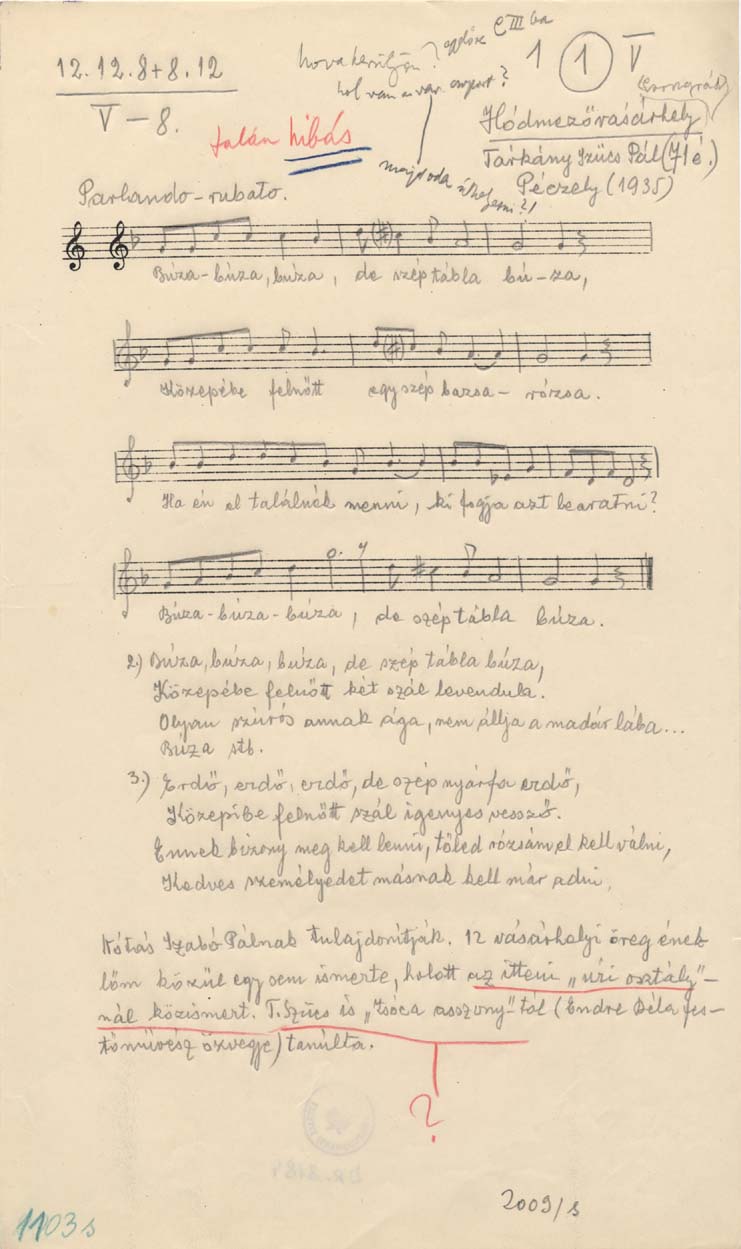 12.12.8+8.12
V-8.
hova kerüljön? egyelőre CIII ba
hol van a var. csoport?
majd oda áthelyezni?!
1 1 V
talán hibás
(Csongrád)
Hódmezővásárhely
Tárkány Szücs Pál (71é.)
Péczely (1935)
Parlando-rubato.
Búza-búza, búza, de szép tábla bú-za,
Közepébe felnőtt egy szép bazsa-rózsa.
Ha én el találnék menni, ki fogja azt bearatni?
Búza-búza-búza, de szép tábla búza.
2.) Búza, búza, búza, de szép tábla búza,
Közepébe felnőtt két szál levendula.
Olyan szúrós annak ága, nem állja a madár lába...
Búza stb.
3.) Erdő, erdő, erdő, de szép nyárfa erdő,
Közepibe felnőtt szál igenyes vessző.
Ennek bizony meg kell lenni, tőled rózsám el kell válni,
Kedves személyedet másnak kell már adni,
Nótás Szabó Pálnak tulajdonítják. 12 vásárhelyi öreg ének
lőm közül egy sem ismerte, holott az itteni „úri osztály"-
nál közismert. T. Szücs is „ asszony"-tól (Endre Béla fes-
tőművész özvegye) tanúlta.
?
2009/s
1103s